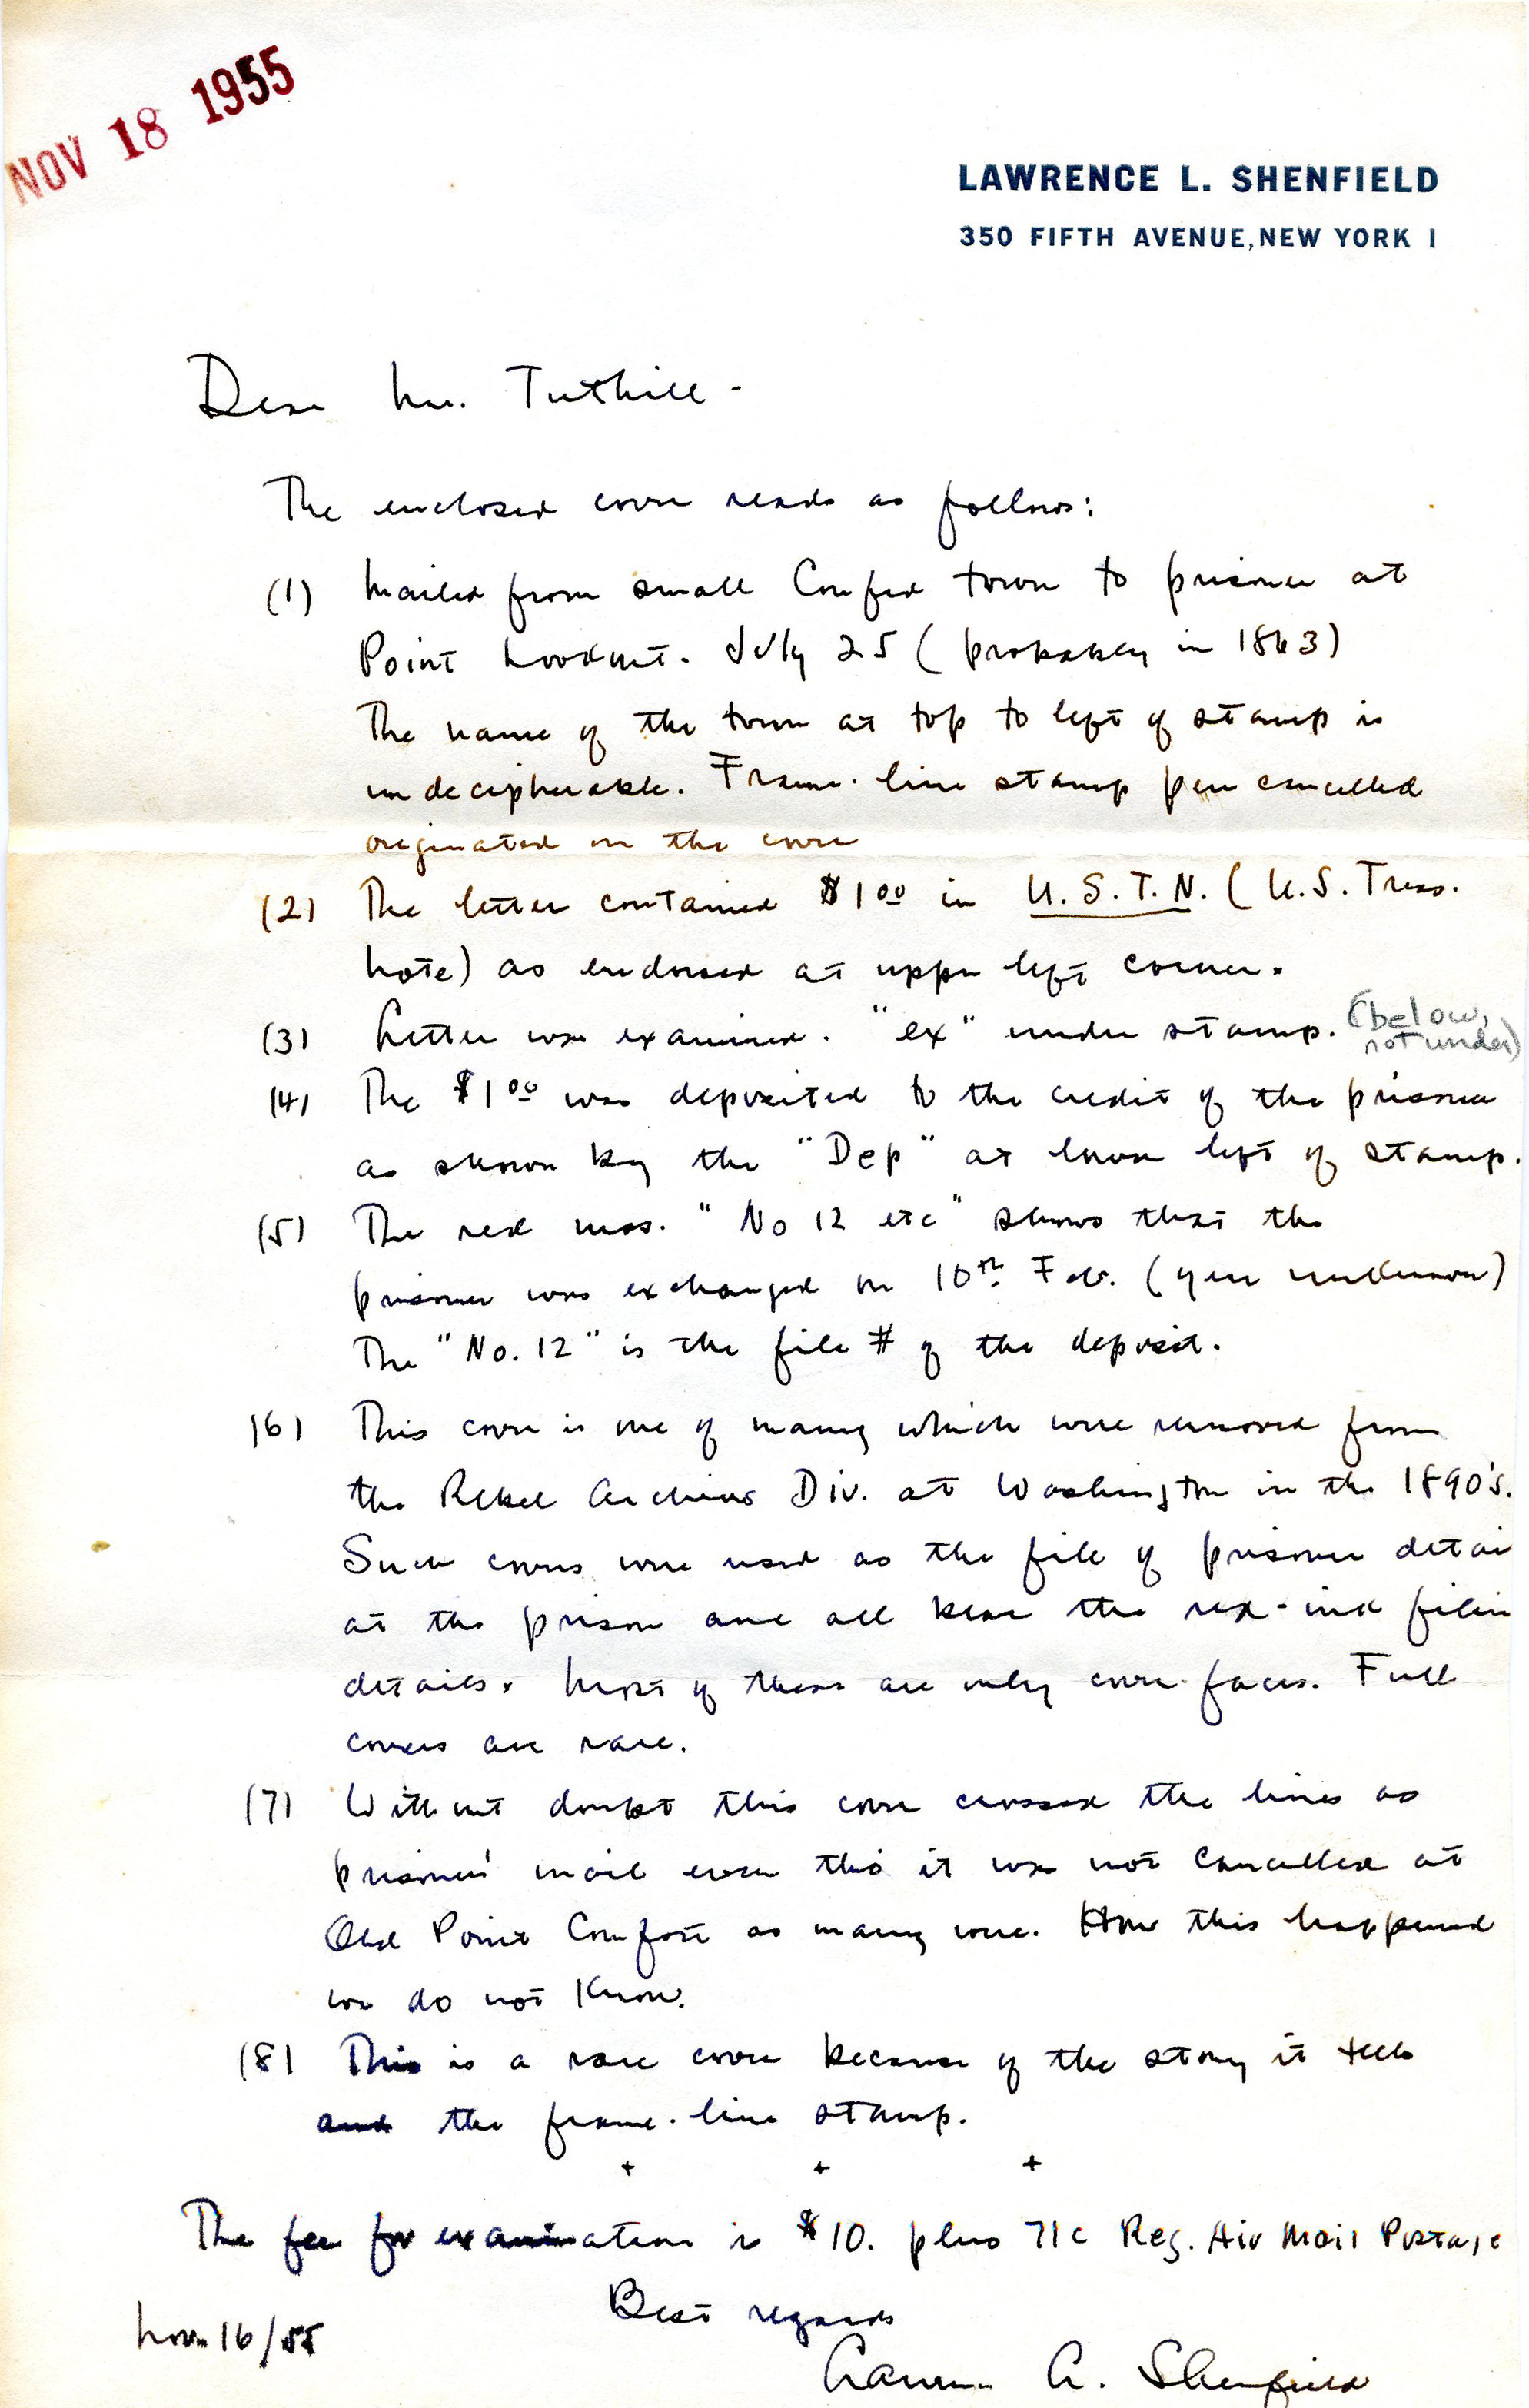 NOV 18 1955
LAWRENCE L. SHENFIELD
350 FIFTH AVENUE, NEW YORK 1
Dear Mr. Tuthill -
The enclosed cover reads as follows:
(1) Mailed from small Confed town to prisoner at
Point Lookout. July 25 (probably in 1863)
The name of the town at top to left of stamp is
undecipherable. Frame-line stamp pen cancelled
originated on the cover
(2) The letter contained $1 00 in U.S.T.N. (U.S. Treas.
Note) as endorsed at upper left corner.
(3) Letter was examined. "ex" under stamp. (below,
not under)
(4) The $1 00 was deposited to the credit of the prisoner
as shown by the "Dep" at lower left of stamp.
(5) The red mss. "No 12 etc" shows that the
prisoner was exchanged on 10th Feb. (year unknown)
The "No. 12" is the file # of the deposit.
(6) This cover is one of many which were removed from
the Rebel Archives Div. at Washington in the 1890's.
Such covers were used as the file of prisoner detai
at the prison and all bear the red-ink filin
details. Most of these are only cover-faces. Full
covers are rare.
(7) Without doubt this cover crossed the lines as
prisoners' mail even tho it was not cancelled at
Old Point Comfort as many were. How this happened
we do not know.
(8) This is a rare cover because of the story it tells
and the frame-line stamp.
+ + +
The fee for examination is $10. plus 71c Reg. Air Mail Postage
Best regards
Nov. 16/55
Lawrence L. Shenfield